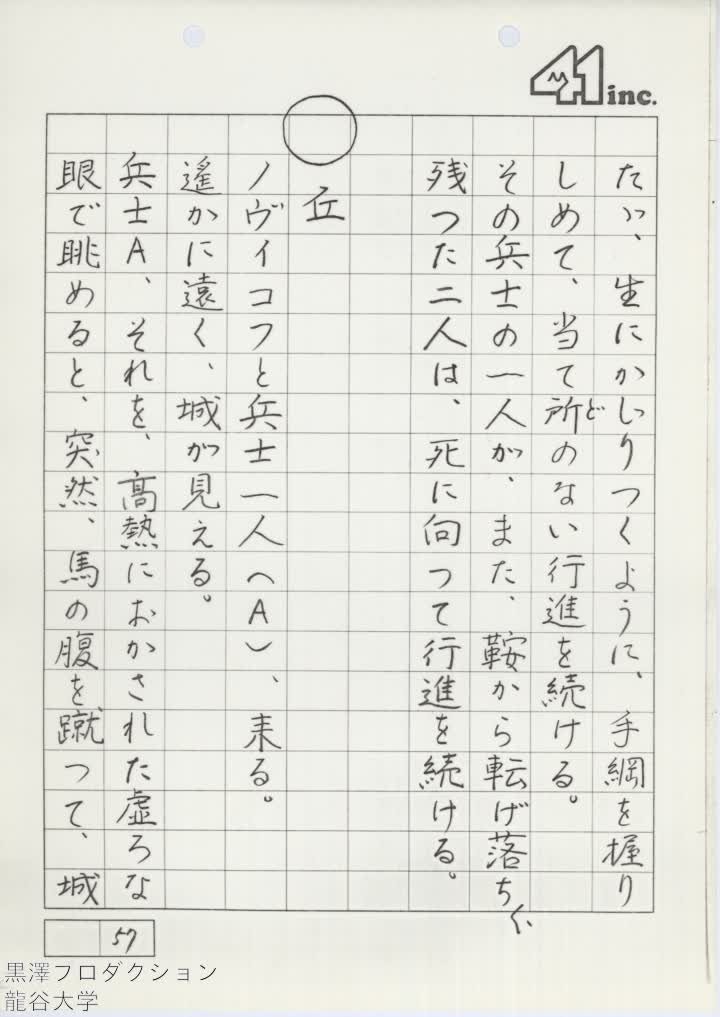 41 inc.
たゞ、生にかじりつくように、手綱を握り
しめて、当て所のない行進を続ける。
ど
その兵士の一人が、また、鞍から転げ落ちく、
残つた二人は、死に向つて行進を続ける。
○丘
ノヴィコフと兵士一人（A）、来る。
遙かに遠く、城が見える。
兵士A、それを、高熱におかされた虚ろな
眼で眺めると、突然、馬の腹を蹴つて、城
57
黒澤プロダクション
龍谷大学